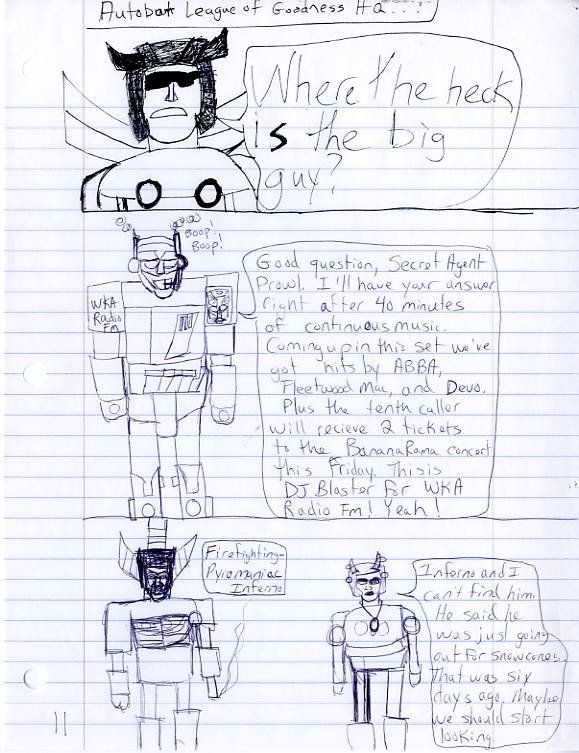 Autobot League of Goodness HQ...!
Where the heck
is the big
guy?
Boop!
Boop!
WKA
Radio
Fm
Good question, Secret Agent
Prowl. I'll have your answer
right after 40 minutes
of continuous music.
Coming up in this set we've
got hits by ABBA,
Fleetwood Mac, and Devo.
Plus the tenth caller
will recieve 2 tickets
to the BananaRama concert
this Friday. This is
DJ Blaster for WKA
Radio Fm! Yeah!
Firefighting-
Pyromaniac
Inferno
Inferno and I
can't find him.
He said he
was just going
out for snowcones.
That was six
days ago. Maybe
we should start
looking.
11